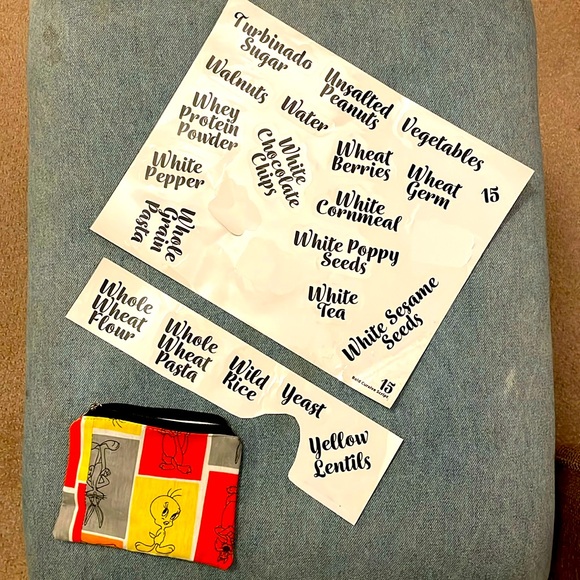 Turbinado
Sugar
Walnuts
Unsalted
Peanuts
Water
Vegetables
Whey
Protein
Powder
White
Chocolate
Chips
Wheat
Berries
Wheat
Germ
15
White
Pepper
White
Cornmeal
Whole
Grain
Pasta
White Poppy
Seeds
White
Tea
White Sesame
Seeds
15
Bold Cursive Script
Whole
Wheat
Flour
Whole
Wheat
Pasta
Wild
Rice
Yeast
Yellow
Lentils